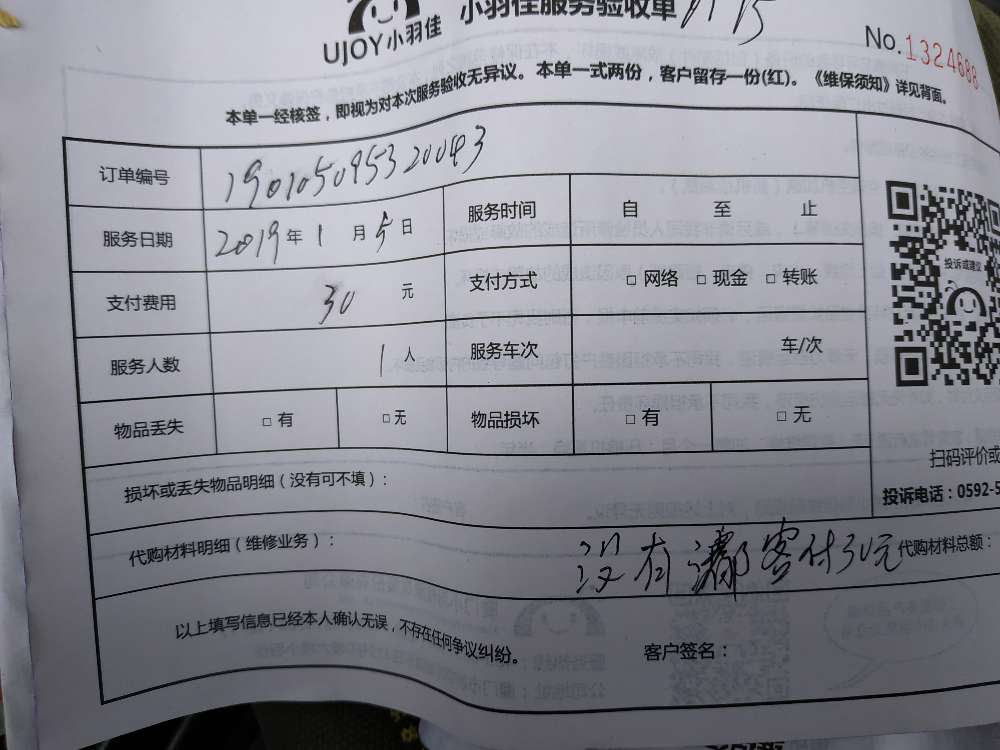 小羽佳服务验收单
UJOY小羽佳
No.1324688
本单一经核签，即视为对本次服务验收无异议。本单一式两份，客户留存一份(红)。《维保须知》详见背面。
订单编号 190105095320043
服务日期 2019年 1 月 5 日 服务时间 自 至 止
支付费用 30 元 支付方式 □ 网络 □ 现金 □ 转账
投诉或建议
服务人数 1 人 服务车次 车/次
物品丢失 □ 有 □ 无 物品损坏 □ 有 □ 无
扫码评价或
损坏或丢失物品明细（没有可不填）：
投诉电话：0592-5
代购材料明细（维修业务）： 没有 客付30元 代购材料总额：
以上填写信息已经本人确认无误，不存在任何争议纠纷。 客户签名：